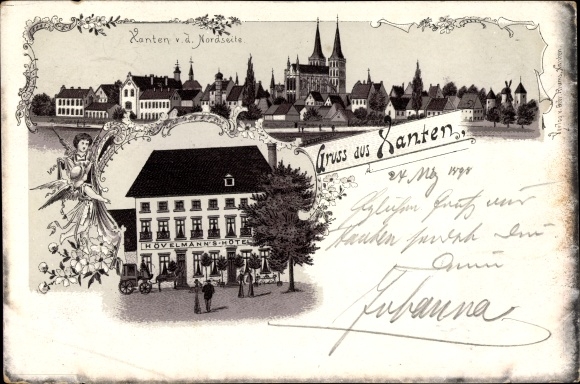 Xanten v. d. Nordseite
Gruss aus Xanten,
HÖVELMANN'S-HÔTEL
24 Mz 1898
Herzlichen Gruß aus
Xanten sendet Dir
Deine
Johanna